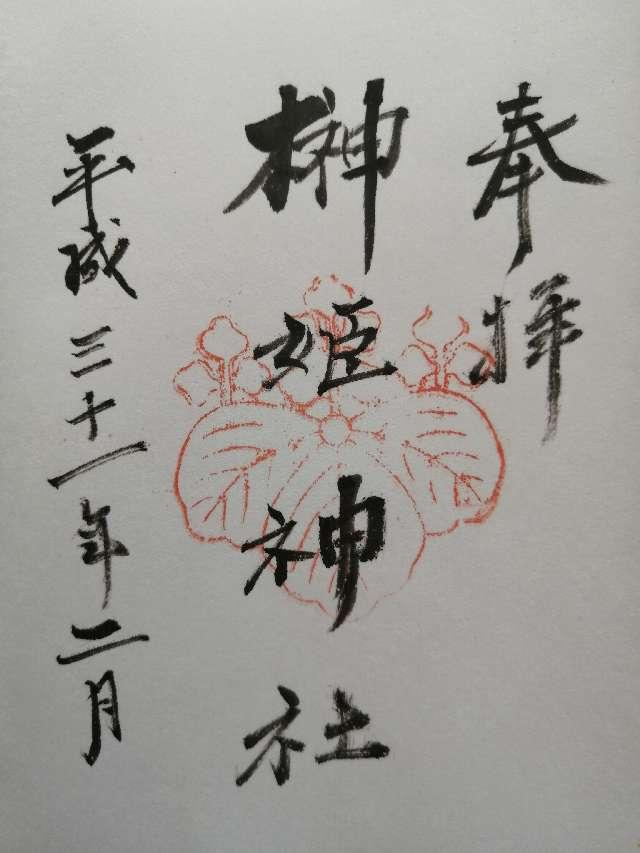 奉拝
榊姫神社
平成三十一年二月